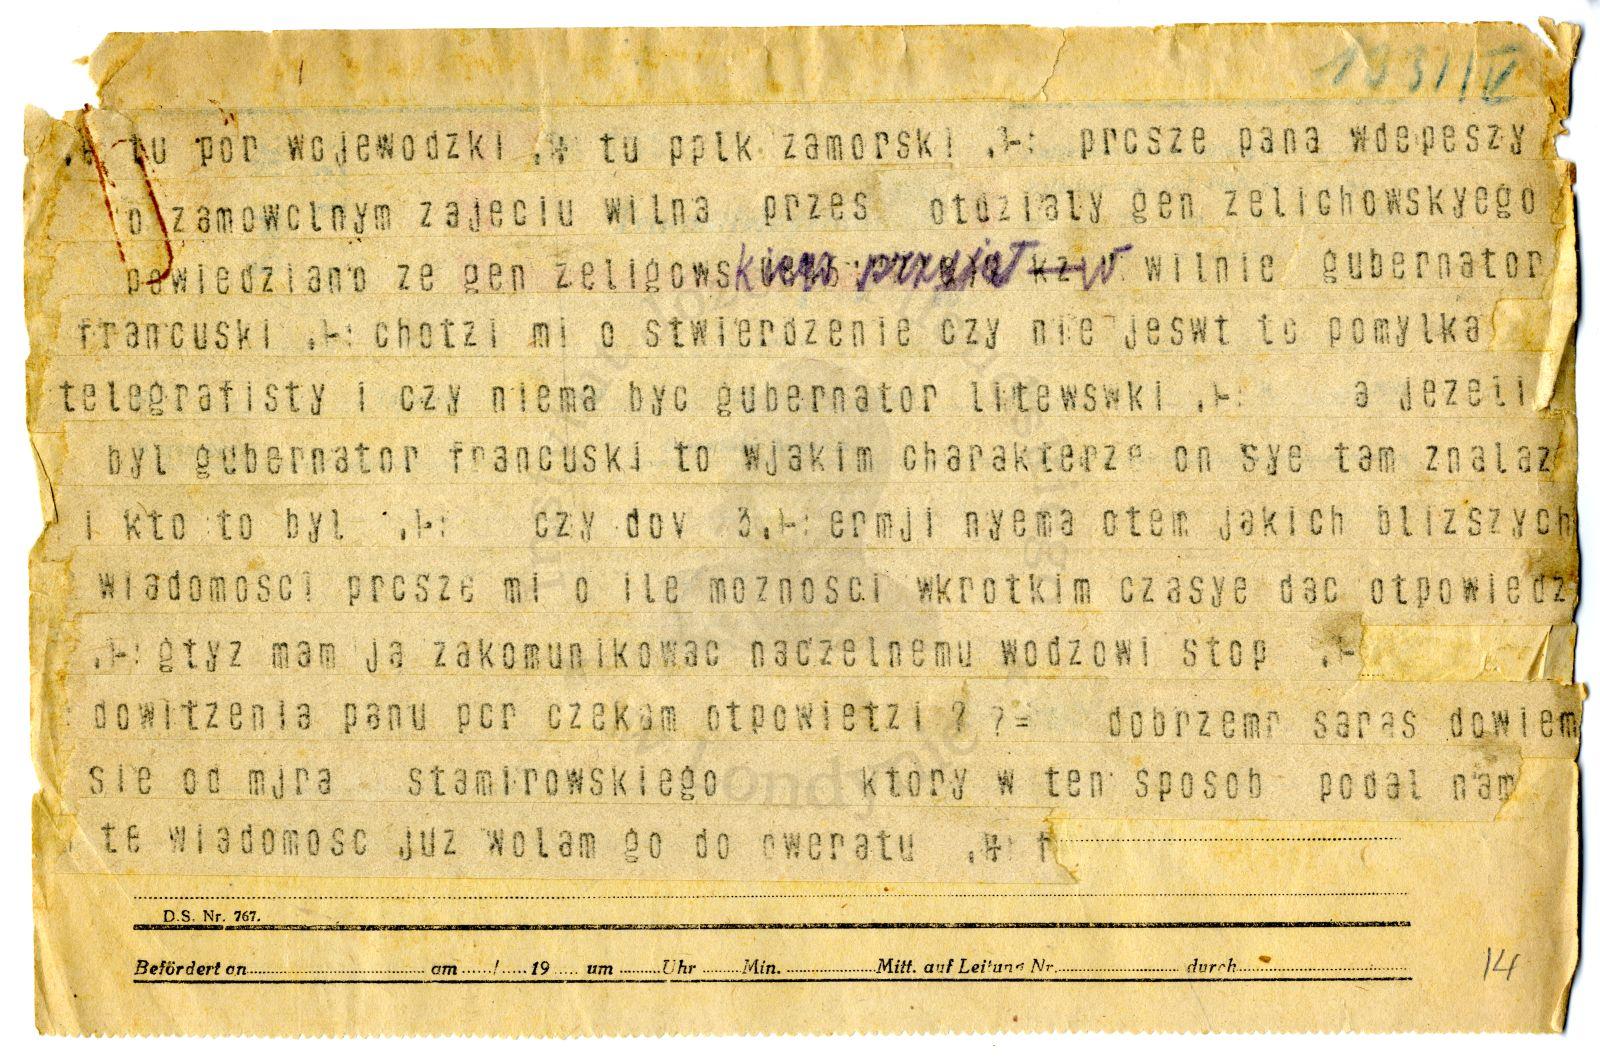 1931/IV
tu por wojewodzki .+ tu pplk zamorski .+: prcsze pana wdepeszy
o zamowclnym zajeciu wilna przes otdzialy gen zelichowskyego
powiedziano ze gen zeligowskiego przyjął w wilnie gubernator
francuski .+: chotzi mi o stwierdzenie czy nie jeswt tc pomylka
telegrafisty i czy niema byc gubernator litewswki .+: a jezeli
byl gubernator francuski to wjakim charakterze on sye tam znalaz
i kto to byl .+: czy dov 3.+: ermji nyema otem jakich blizszych
wiadomosci prcsze mi o ile moznosci wkrotkim czasye dac otpowiedz
.+: gtyz mam ja zakomunikowac naczelnemu wodzowi stop .+
dowitzenia panu pcr czekam otpowietzi ? ?= dobrzemr saras dowiem
sie od mjra stamirowskiego ktory w ten sposob podal nam
te wiadomosc juz wolam go do oweratu .+: f
D.S. Nr. 767.
Befördert an am / 19 um Uhr Min. Mitt. auf Leitung Nr. durch
14